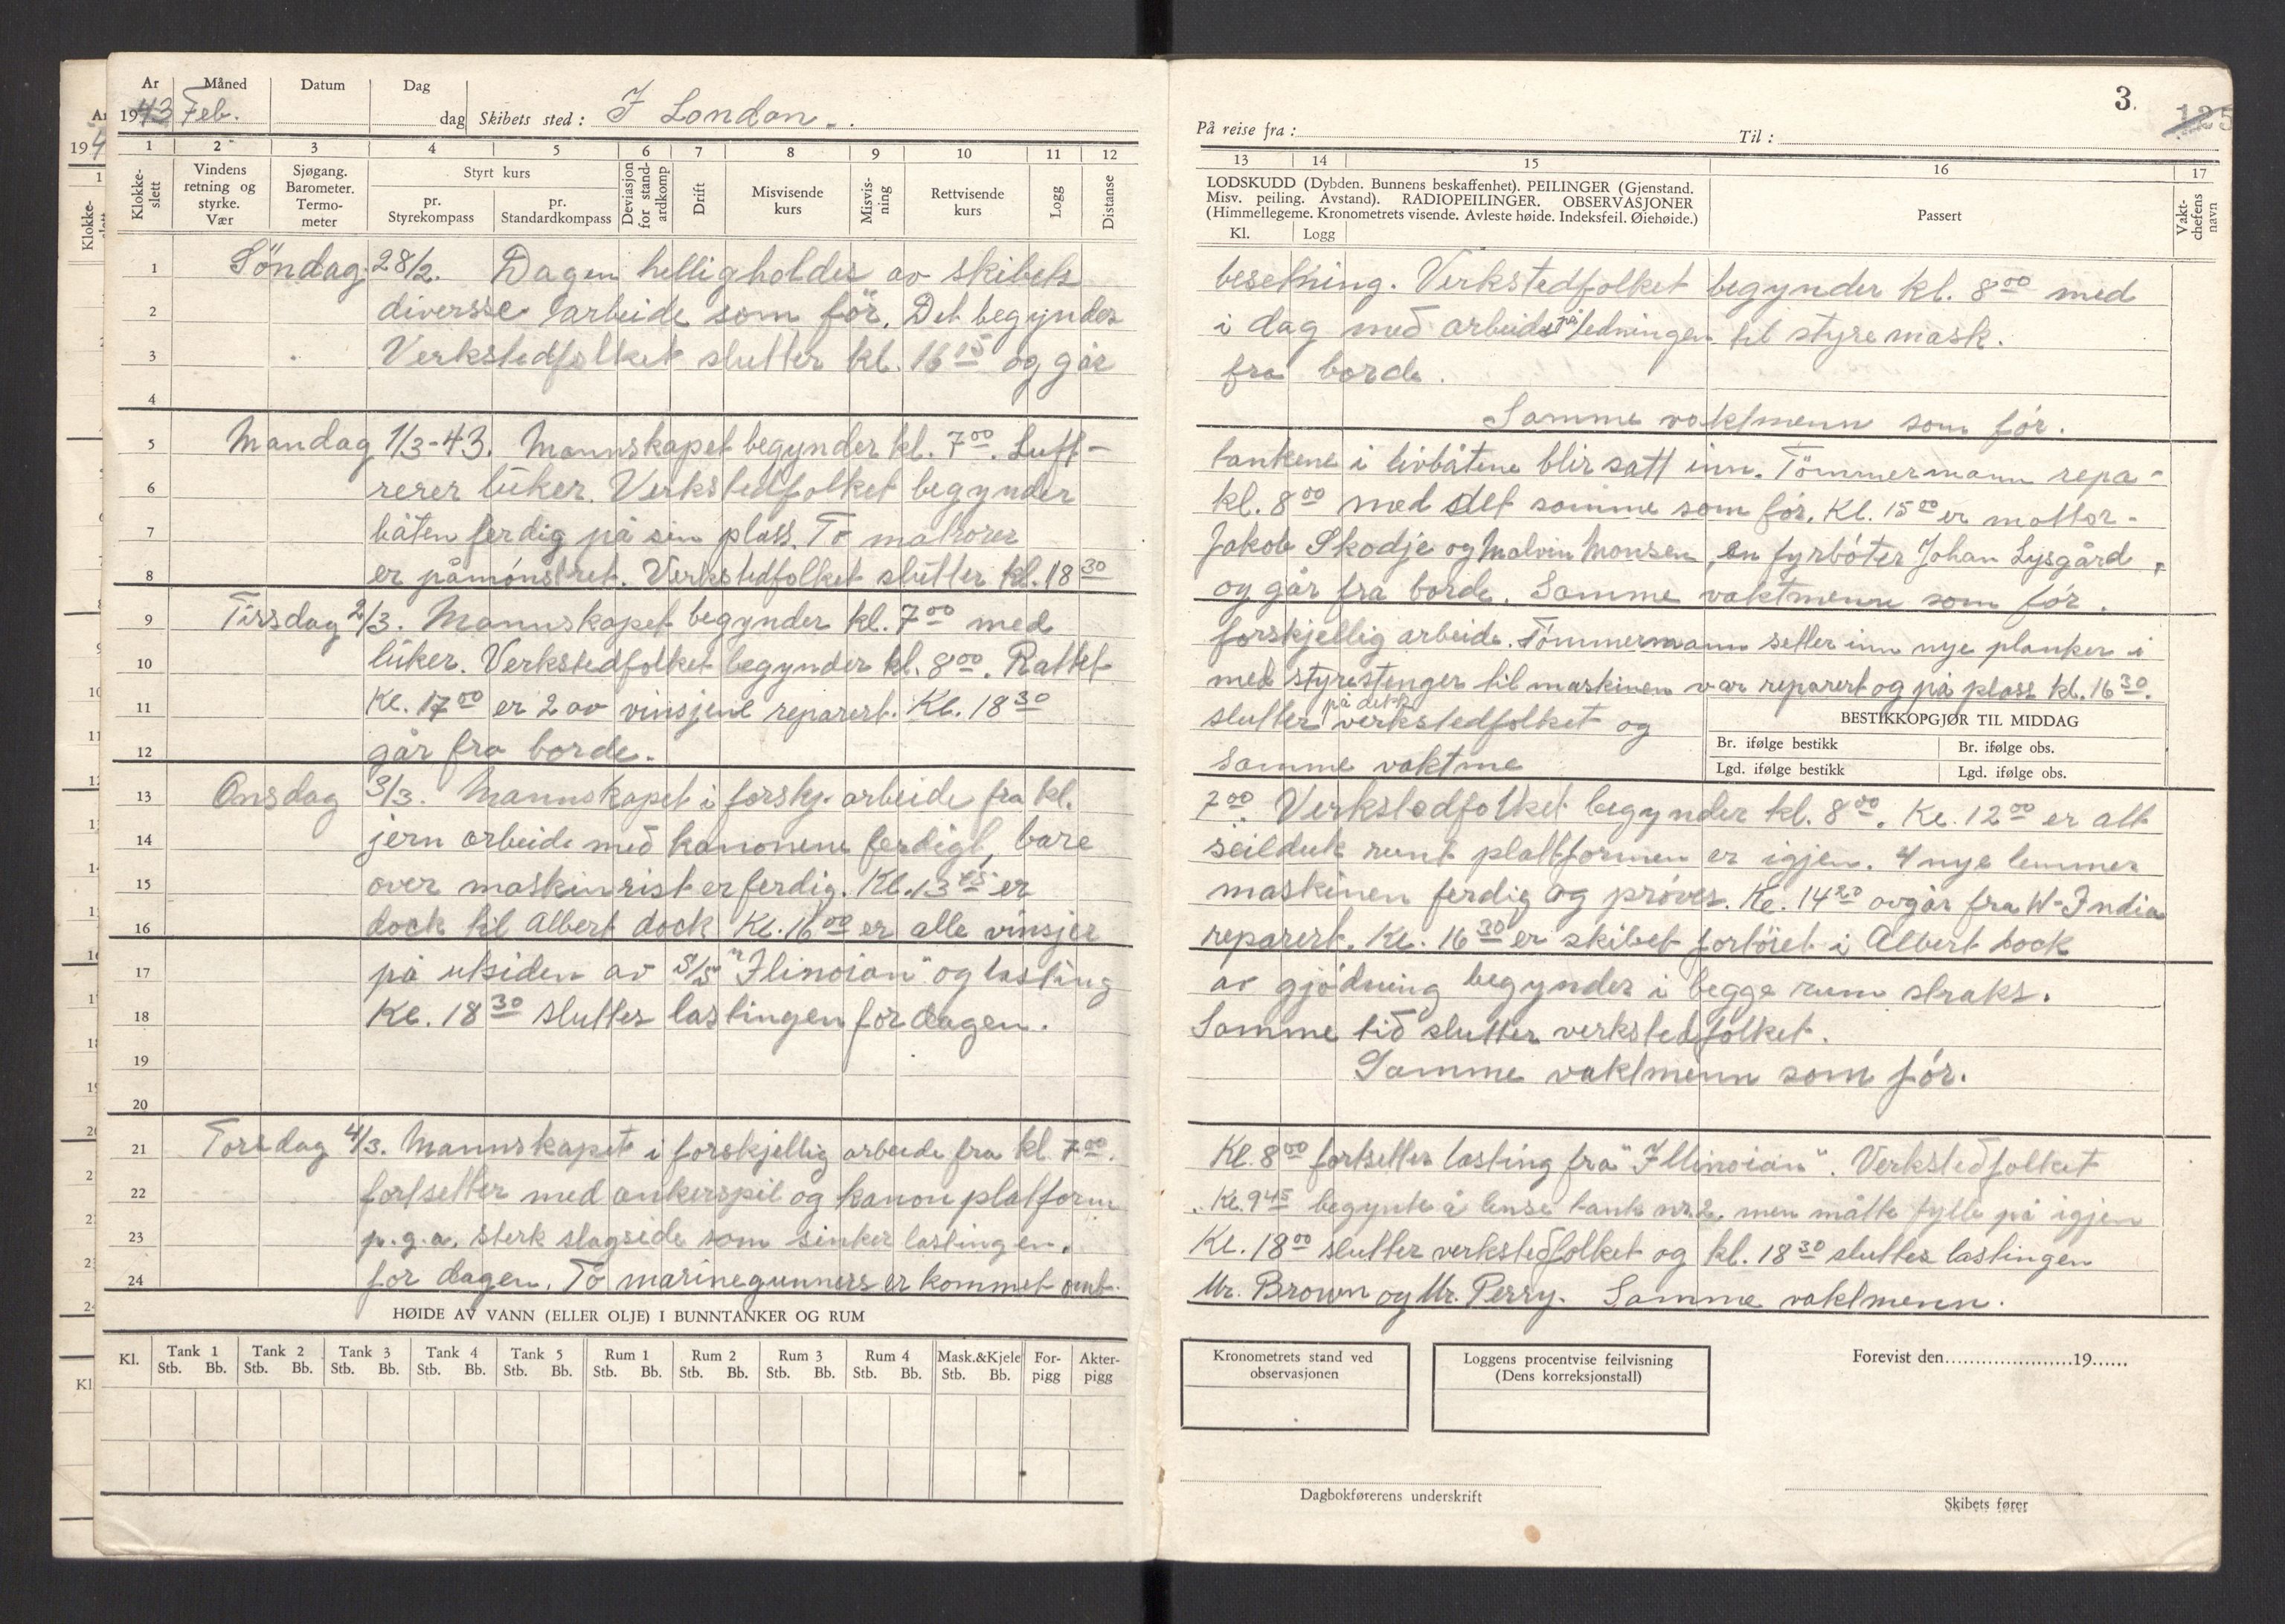 Ar Måned Datum Dag
1943 Feb. dag Skibets sted: I London.
1 2 3 4 5 6 7 8 9 10 11 12
Klokkeslett
Vindens retning og styrke. Vær
Sjøgang. Barometer. Termometer
Styrt kurs
pr. Styrekompass
pr. Standardkompass
Deviasjon for standardkomp
Drift
Misvisende kurs
Misvisning
Rettvisende kurs
Logg
Distanse
1 Söndag 28/2. Dagen helligholdes av skibets
2 diversse arbeide som för. Det begyndes
3 Verkstedfolket slutter kl. 16 15 og går
4
5 Mandag 1/3-43. Mannskapet begynder kl. 7 00. Luft-
6 rerer lüker. Verkstedfolket begynder
7 båten ferdig på sin plass. To matroser
8 er påmönstret. Verkstedfolket slutter kl. 18 30
9 Tirsdag 2/3. Mannskapet begynder kl. 7 00 med
10 lüker. Verkstedfolket begynder kl. 8 00. Rattet
11 Kl. 17 00 er 2 av vinsjene reparert. Kl. 18 30
12 går fra borde.
13 Onsdag 3/3. Mannskapet i forskj. arbeide fra kl.
14 jern arbeide med kanonene ferdigt, bare
15 over maskinrist er ferdig. Kl. 13 45 er
16 dock til Albert dock Kl. 16 00 er alle vinsjer
17 på utsiden av S/S "Ilinoian" og lasting
18 Kl. 18 30 sluttes lastingen for dagen.
19
20
21 Torsdag 4/3. Mannskapet i forskjellig arbeide fra kl. 7 00.
22 fortsetter med ankerspil og kanon platform
23 p.g.a. sterk slagside som sinker lastingen.
24 for dagen. To marinegunners er kommet omb.
HØIDE AV VANN (ELLER OLJE) I BUNNTANKER OG RUM
Kl. Tank 1 Tank 2 Tank 3 Tank 4 Tank 5 Rum 1 Rum 2 Rum 3 Rum 4 Mask.&Kjele For-pigg Akter-pigg
Stb. Bb. Stb. Bb. Stb. Bb. Stb. Bb. Stb. Bb. Stb. Bb. Stb. Bb. Stb. Bb. Stb. Bb. Stb. Bb.
3.
125
På reise fra: Til:
13 14 15 16 17
LODSKUDD (Dybden. Bunnens beskaffenhet). PEILINGER (Gjenstand.
Misv. peiling. Avstand). RADIOPEILINGER. OBSERVASJONER
(Himmellegeme. Kronometrets visende. Avleste høide. Indeksfeil. Øiehøide.)
Kl. Logg
Passert
Vaktchefens navn
besetning. Verkstedfolket begynder kl. 8 00 med
i dag med arbeide på ledningen til styremask.
fra borde.
Samme vaktmenn som för.
tankene i livbåtene blir satt inn. Tömmermann repa-
kl. 8 00 med det samme som för. Kl. 15 00 er mottor-
Jakob Skodje og Malvin Monsen, en fyrböter Johan Lysgård,
og går fra borde. Samme vaktmenn som för.
forskjellig arbeide. Tömmermann setter inn nye planker i
med styrestenger til maskinen var reparert og på plass kl. 16 30.
slutter verkstedfolket og
samme vaktme
BESTIKKOPGJØR TIL MIDDAG
Br. ifølge bestikk Br. ifølge obs.
Lgd. ifølge bestikk Lgd. ifølge obs.
7 00. Verkstedfolket begynder kl. 8 00. Kl. 12 00 er alt
seilduk runt plattformen er igjen. 4 nye lemmer
maskinen ferdig og prøves. Kl. 14 20 avgår fra W-India
reparert. Kl. 16 30 er skibet fortöiet i Albert dock
av gjödning begynder i begge rum straks.
Samme tid slutter verkstedfolket.
Samme vaktmenn som för.
Kl. 8 00 fortsetter lasting fra "Illinoian". Verkstedfolket
. Kl. 9 45 begynte å lense tank nr. 2, men måtte fylle på igjen
Kl. 18 00 slutter verkstedfolket og kl. 18 30 sluttes lastingen
Mr. Brown og Mr. Perry. Samme vaktmenn.
Kronometrets stand ved observasjonen
Loggens procentvise feilvisning (Dens korreksjonstall)
Forevist den 19
Dagbokførerens underskrift
Skibets fører